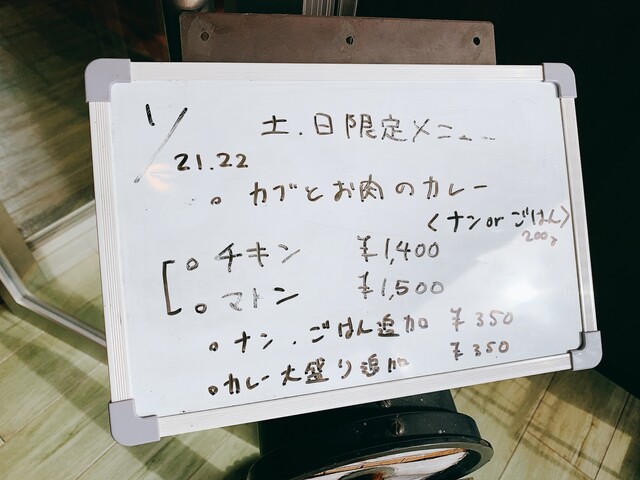 1/21.22
土.日限定メニュー
。カブとお肉のカレー
<ナンorごはん>
200g
。チキン ¥1,400
。マトン ¥1,500
。ナン.ごはん追加 ¥350
。カレー大盛り追加 ¥350